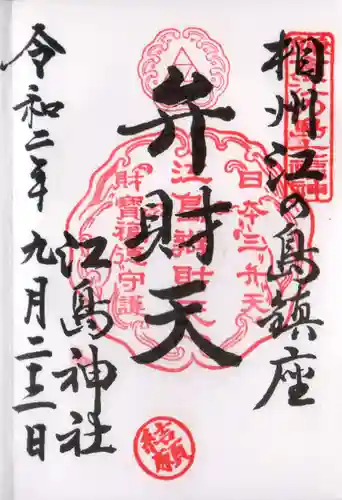 相州江の島鎮座
弁財天
江島神社
令和二年九月二十二日
日本三弁天
江島弁財天
財寳福徳守護
結願